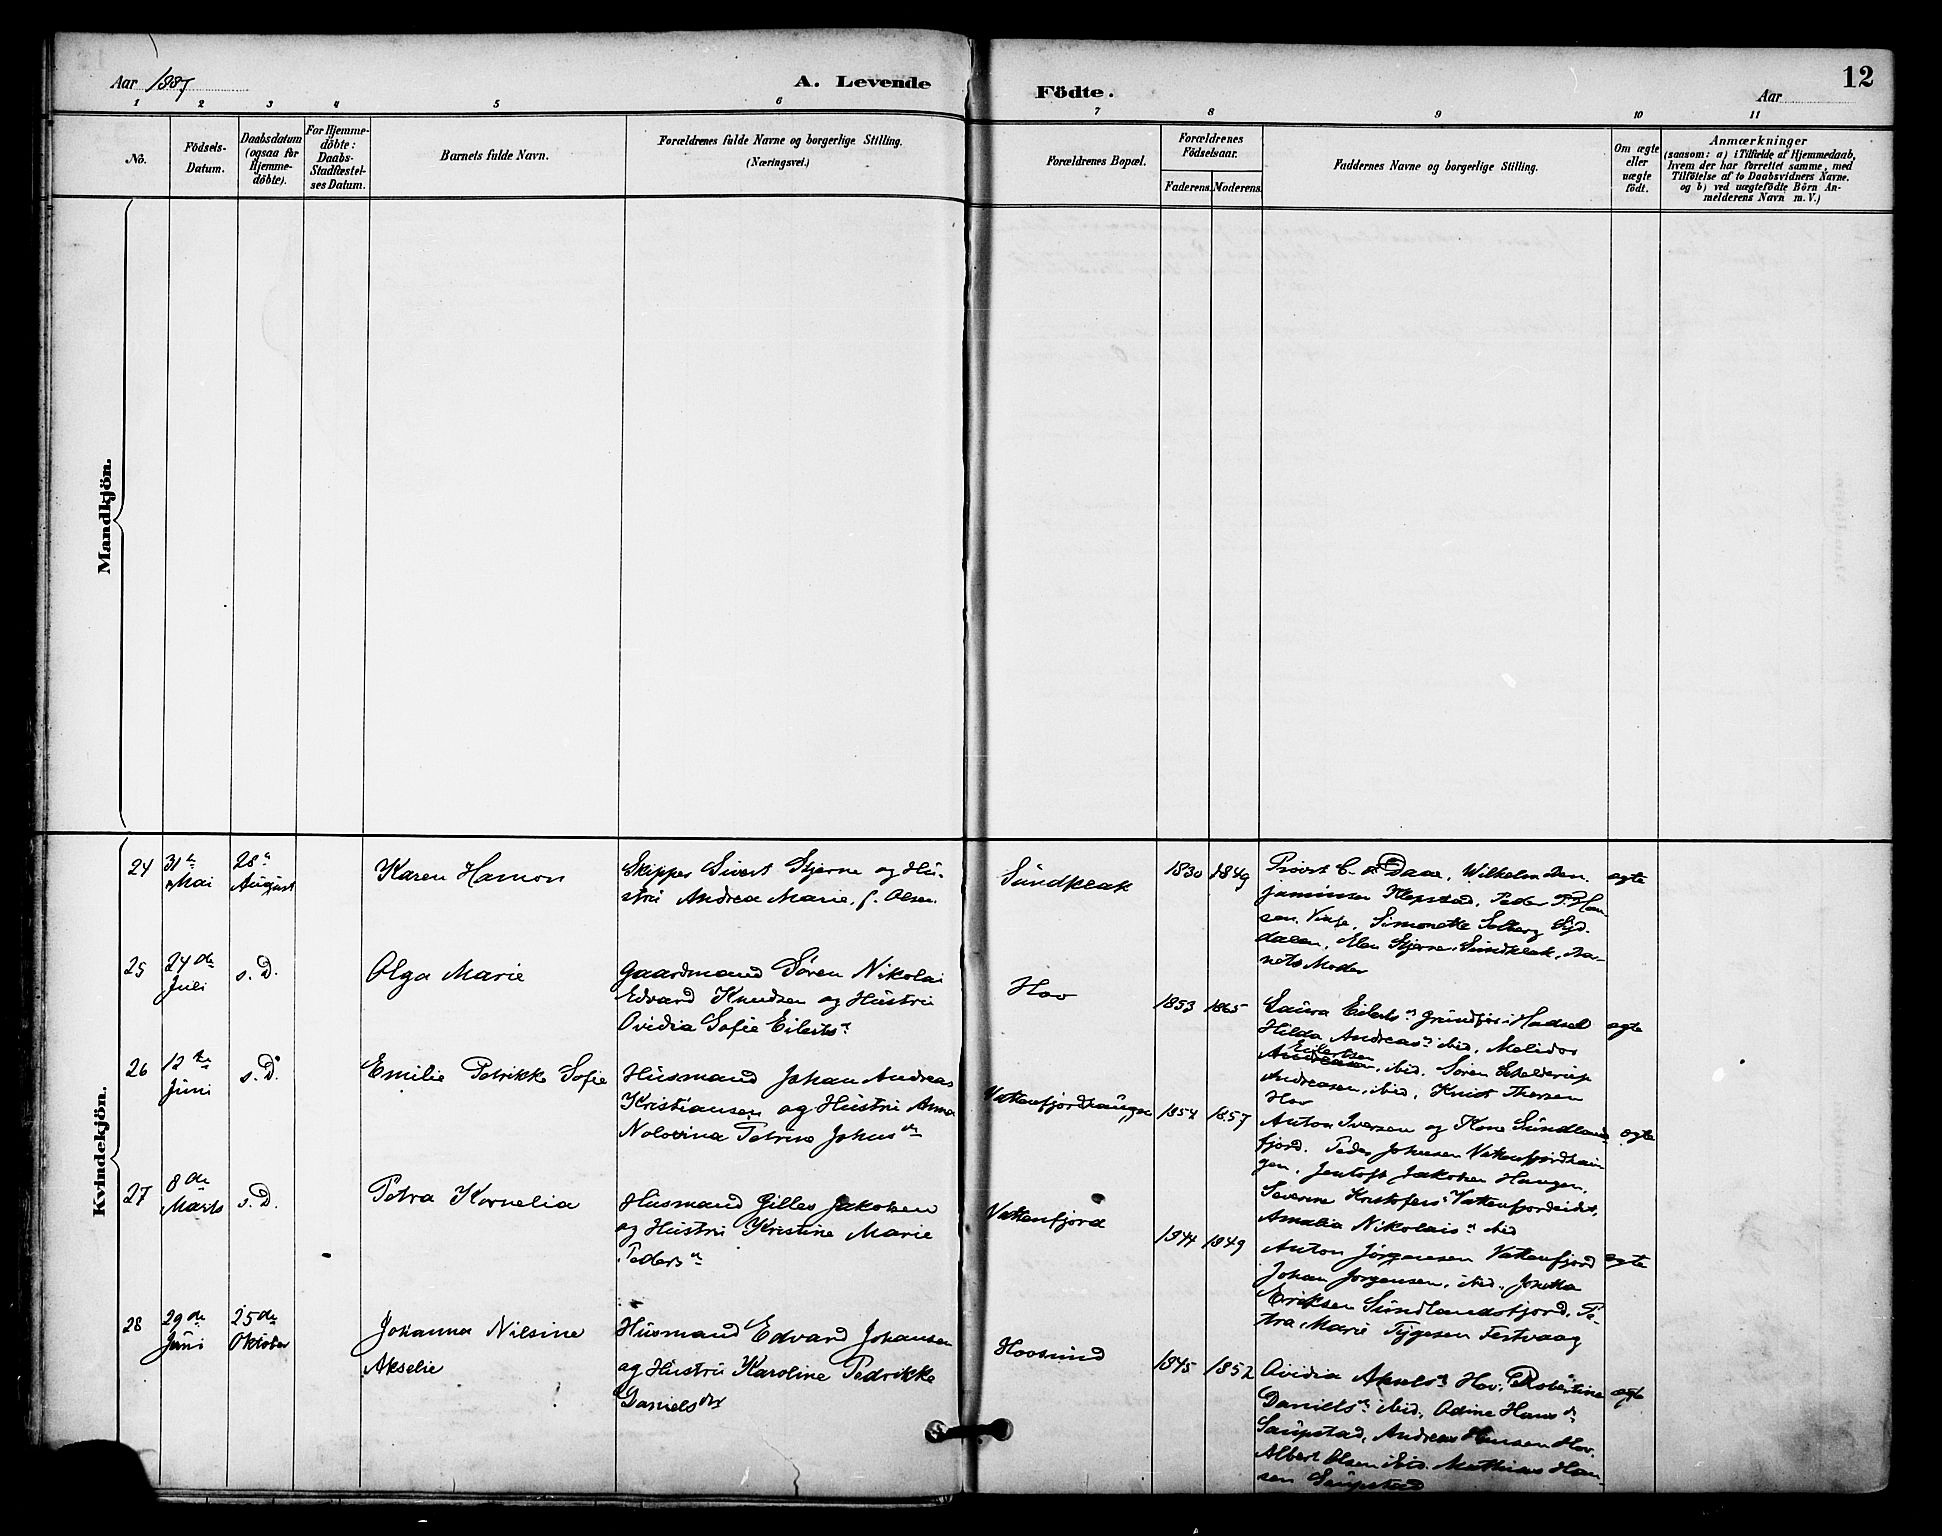 Aar 1887
A. Levende
Födte.
Aar
12
1 2 3 4 5 6 7 8 9 10 11
No.
Födsels-
Datum.
Daabsdatum
(ogsaa for
Hjemme-
döbte).
For Hjemme-
döbte:
Daabs-
Stadfæstel-
ses Datum.
Barnets fulde Navn.
Forældrenes fulde Navne og borgerlige Stilling.
(Næringsvei.)
Forældrenes Bopæl.
Forældrenes
Födselsaar.
Faderens. Moderens.
Faddernes Navne og borgerlige Stilling.
Om ægte
eller
uægte
födt.
Anmærkninger
(saasom: a) i Tilfælde af Hjemmedaab,
hvem der har forrettet samme, med
Tilföielse af to Daabsvidners Navne.
og b) ved uægtefödte Börn An-
melderens Navn m. V.)
Mandkjön.
Kvindekjön.
24
31te
Mai
28n
August
Karen Hamon
Skipper Sivert Stjerne og Hu-
stru Andrea Marie, f. Olsen
Sundklak
1830 1849
Provst C. Daae, Wilhelm Ben-
jaminsen Klepstad, Peder T. Han-
sen, Simonette Solberg Syd-
dalen, Elen Stjerne Sundklak, Bar-
nets Moder
ægte
25
24de
Juli
s. D.
Olga Marie
Gaardmand Sören Nikolai
Edvard Knudsen og Hustru
Ovidia Sofie Eilertsn
Hov
1853 1865
Laura Eilertsn Grundför i Hadsel
Hilda Andreasn ibid, Melidor
Eilertsen
Andreasen, ibid. Sören Schelderup
Andreasen, ibid, Knut Thersen
Hov
ægte
26
12te
Juni
s. D.
Emilie Petrikke Sofie
Husmand Johan Andreas
Kristiansen og Hustru Anna
Nolovina Petrine Johnsdn
Vatenfjordhaugen
1854 1857
Anton Iversen og Kone Sundlands-
fjord. Peder Johnsen Vatenfjordhau-
gen, Jentoft Jakobsen Haugen,
Severine Kristofersn Vatenfjordeidet,
Amalia Nikolaisn ibid
ægte
27
8de
Marts
s. D.
Petra Kornelia
Husmand Gilles Jakobsen
og Hustru Kristine Marie
Pedersn
Vatenfjord
1844 1849
Anton Jörgensen Vatenfjord
Johan Jörgensen, ibid. Jonetta
Eriksen Sundlandsfjord, Pe-
tra Marie Tygesen Festvaag
ægte
28
29de
Juni
25de
Oktober
Johanna Nilsine
Akselie
Husmand Edvard Johansen
og Hustru Karoline Pedrikke
Danielsdtr
Hovsund
1845 1852
Ovidia Akselsn Hov, Robertine
Danielsn ibid, Odine Hansdn
Saupstad, Andreas Hansen Hov
Albert Olsen ibid. Mathias Han-
sen Saupstad
ægte